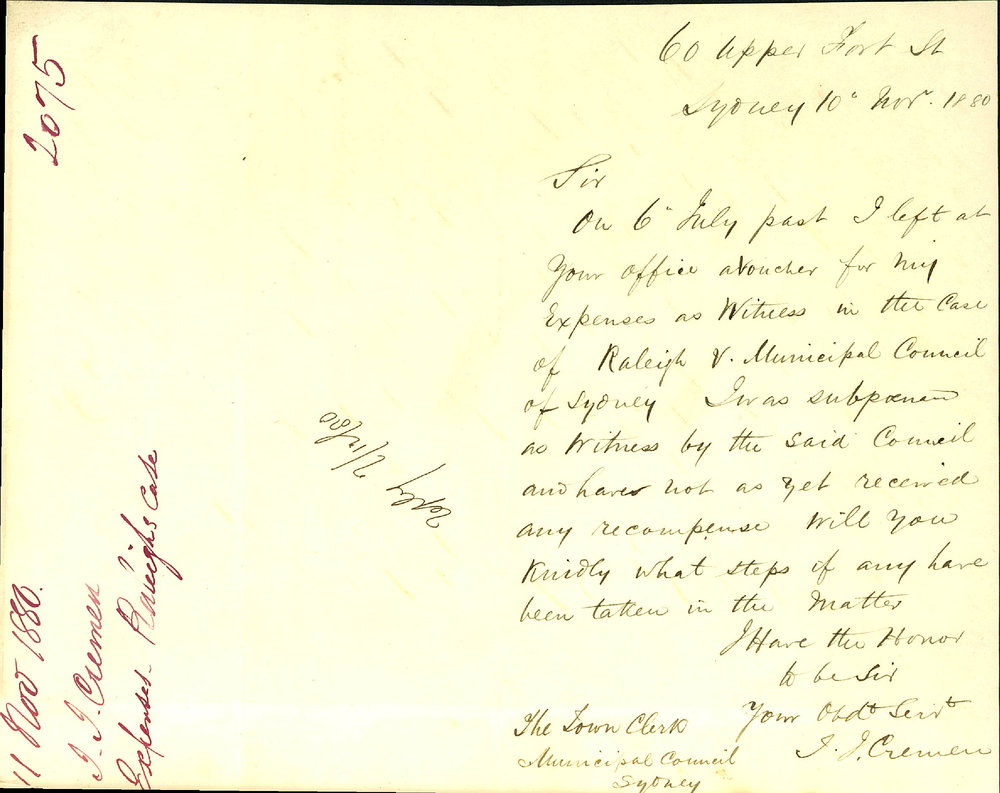 60 Upper Fort St
Sydney 10" Novr. 1880
Sir
On 6" July past I left at
Your office a Voucher for my
Expenses as Witness in the Case
of Raleigh V. Municipal Council
of Sydney I was subpœnaed
as Witness by the said Council
and have not as yet received
any recompense Will You
Kindly what steps if any have
been taken in the Matter
I Have the Honor
to be Sir
Your Obdt Servt
J. J. Cremen
The Town Clerk
Municipal Council
Sydney
2075
11 Nov 1880.
J. J. Cremen
Expenses - Raleigh's case